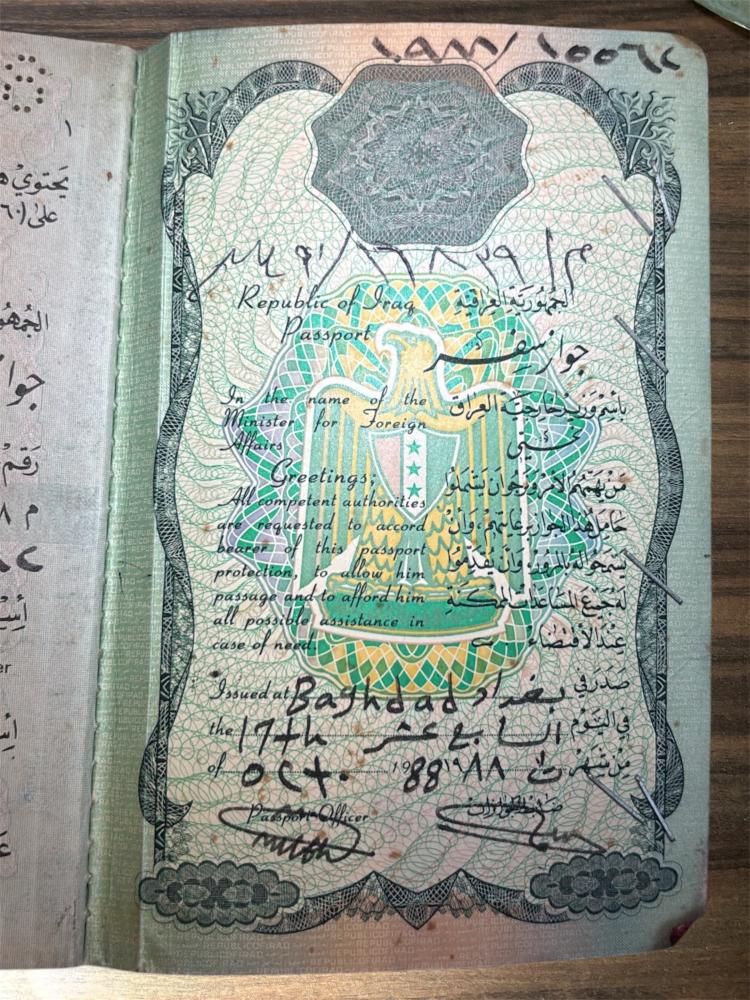 ١٩٨٨/١٥٥٦٢
Republic of Iraq
الجمهورية العراقية
Passport
جواز سفر
In the name of the
Minister for Foreign
Affairs
باسم وزير خارجية العراق
Greetings;
All competent authorities
are requested to accord
bearer of this passport
protection, to allow him
passage and to afford him
all possible assistance in
case of need.
من يهمهم الأمر نرجو أن يشملوا
حامل هذا الجواز برعايتهم وأن
يسمحوا له بالمرور وأن يقدموا
له جميع المساعدات الممكنة
عند الاقتضاء
Issued at Baghdad
صدر في بغداد
the 17th
في اليوم السابع عشر
of Oct. 1988
من شهر ت ١٩٨٨
Passport Officer
١
يحتوي
على (٦٠
جوا
رقم